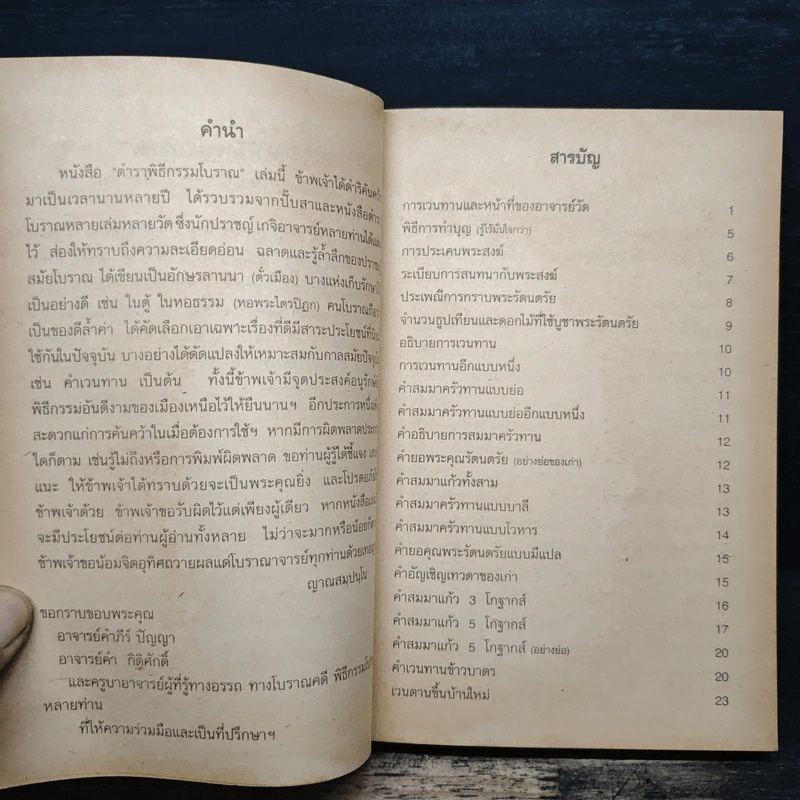 คำนำ
หนังสือ "ตำราพิธีกรรมโบราณ" เล่มนี้ ข้าพเจ้าได้ดำริค้นคว้า
มาเป็นเวลานานหลายปี ได้รวบรวมจากปั๊บสาและหนังสือตำรา
โบราณหลายเล่มหลายวัด ซึ่งนักปราชญ์ เกจิอาจารย์หลายท่านได้แต่ง
ไว้ ส่องให้ทราบถึงความละเอียดอ่อน ฉลาดและรู้ล้ำลึกของปราชญ์
สมัยโบราณ ได้เขียนเป็นอักษรลานนา (ตั๋วเมือง) บางแห่งเก็บรักษาไว้
เป็นอย่างดี เช่น ในตู้ ในหอธรรม (หอพระไตรปิฎก) คนโบราณถือว่า
เป็นของดีล้ำค่า ได้คัดเลือกเอาเฉพาะเรื่องที่ดีมีสาระประโยชน์ที่นิยม
ใช้กันในปัจจุบัน บางอย่างได้ดัดแปลงให้เหมาะสมกับกาลสมัยปัจจุบัน
เช่น คำเวนทาน เป็นต้น ทั้งนี้ข้าพเจ้ามีจุดประสงค์อนุรักษ์
พิธีกรรมอันดีงามของเมืองเหนือไว้ให้ยืนนานฯ อีกประการหนึ่งเพื่อ
สะดวกแก่การค้นคว้าในเมื่อต้องการใช้ฯ หากมีการผิดพลาดประการ
ใดก็ตาม เช่นรู้ไม่ถึงหรือการพิมพ์ผิดพลาด ขอท่านผู้รู้ได้ชี้แจง
แนะ ให้ข้าพเจ้าได้ทราบด้วยจะเป็นพระคุณยิ่ง และโปรดอภัยให้
ข้าพเจ้าด้วย ข้าพเจ้าขอรับผิดไว้แต่เพียงผู้เดียว หากหนังสือ
จะมีประโยชน์ต่อท่านผู้อ่านทั้งหลาย ไม่ว่าจะมากหรือน้อยก็ตาม
ข้าพเจ้าขอน้อมจิตอุทิศถวายผลแด่โบราณาจารย์ทุกท่านด้วยเทอญ
ญาณสมฺปนฺโน
ขอกราบขอบพระคุณ
อาจารย์คำภีร์ ปัญญา
อาจารย์คำ กิติศักดิ์
และครูบาอาจารย์ผู้ที่รู้ทางอรรถ ทางโบราณคดี พิธีกรรม
หลายท่าน
ที่ให้ความร่วมมือและเป็นที่ปรึกษาฯ
สารบัญ
การเวนทานและหน้าที่ของอาจารย์วัด 1
พิธีการทำบุญ (รู้ไว้มั่นใจกว่า) 5
การประเคนพระสงฆ์ 6
ระเบียบการสนทนากับพระสงฆ์ 7
ประเพณีการกราบพระรัตนตรัย 8
จำนวนธูปเทียนและดอกไม้ที่ใช้บูชาพระรัตนตรัย 9
อธิบายการเวนทาน 10
การเวนทานอีกแบบหนึ่ง 10
คำสมมาครัวทานแบบย่อ 11
คำสมมาครัวทานแบบย่ออีกแบบหนึ่ง 11
คำอธิบายการสมมาครัวทาน 12
คำยอพระคุณรัตนตรัย (อย่างย่อของเก่า) 12
คำสมมาแก้วทั้งสาม 13
คำสมมาครัวทานแบบบาลี 13
คำสมมาครัวทานแบบโวหาร 14
คำยอคุณพระรัตนตรัยแบบมีแปล 15
คำอัญเชิญเทวดาของเก่า 15
คำสมมาแก้ว 3 โกฐากส์ 16
คำสมมาแก้ว 5 โกฐากส์ 17
คำสมมาแก้ว 5 โกฐากส์ (อย่างย่อ) 20
คำเวนทานข้าวบาตร 20
เวนดานขึ้นบ้านใหม่ 23